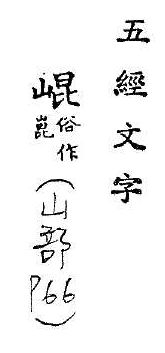 五經文字
崐俗作崑(山部P66)